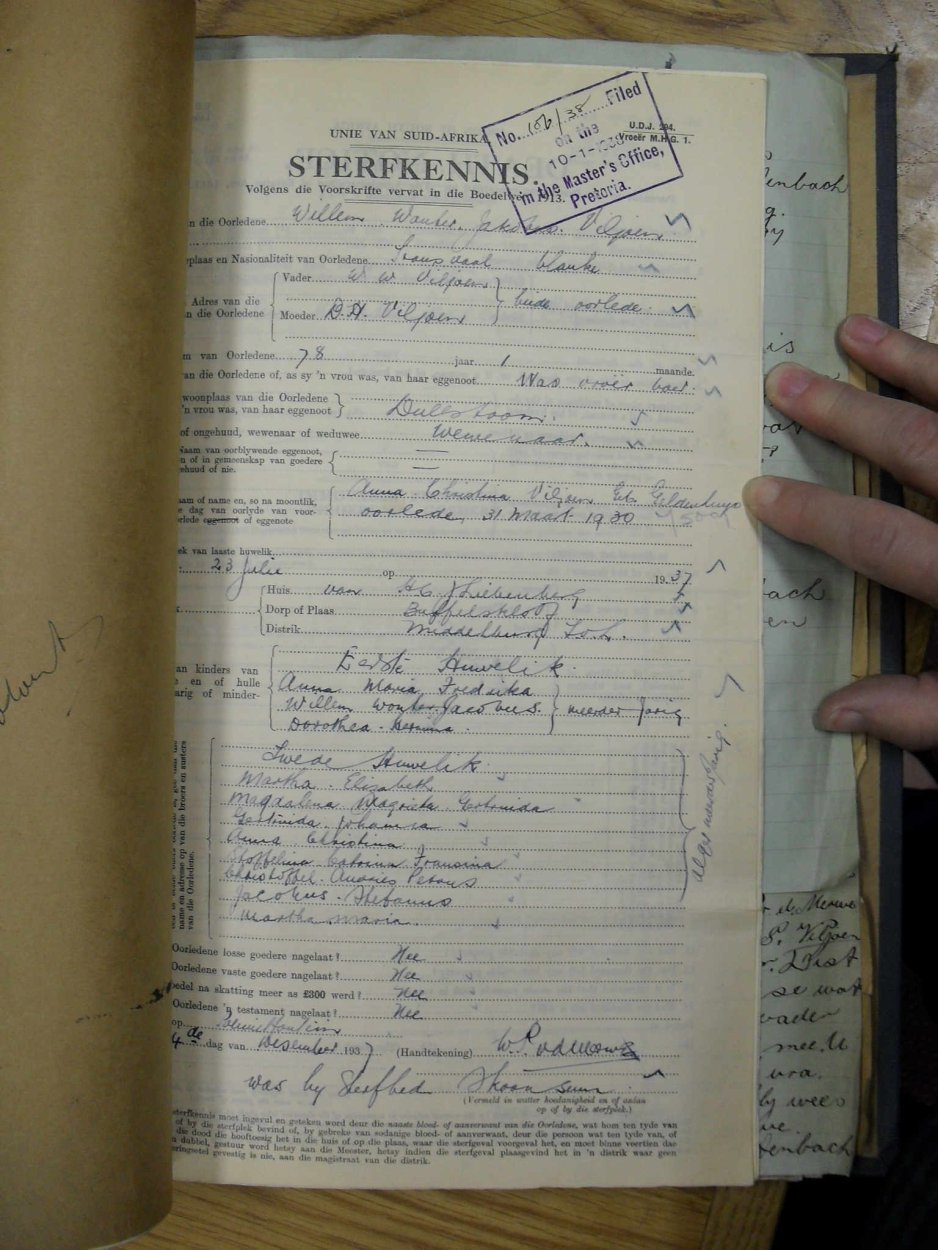 No. 106/38 Filed
on the
10-1-1938
in the Master's Office,
Pretoria.
U.D.J. 294.
Vroeër M.H.G. 1.
UNIE VAN SUID-AFRIKA
STERFKENNIS.
Volgens die Voorskrifte vervat in die Boedelwet, 1913.
n die Oorledene Willem Wouter Jakobus Viljoen
plaas en Nasionaliteit van Oorledene. Transvaal blanke
Vader W W Viljoen
Adres van die
n die Oorledene beide oorlede
Moeder D.H. Viljoen
m van Oorledene 78 jaar 1 maande.
an die Oorledene of, as sy 'n vrou was, van haar eggenoot Was vroër boer
woonplaas van die Oorledene
'n vrou was, van haar eggenoot Dullstoom.
of ongehud, wewenaar of weduwee Wewenaar.
Naam van oorblywende eggenoot,
n of in gemeenskap van goedere
gehuud of nie.
aam of name en, so na moontlik,
e dag van oorlyde van voor-
rlede eggenoot of eggenote
Anna Christina Viljoen Geb Geldenhuys
oorlede 31 Maart 1930
ek van laaste huwelik
23 Julie op 1937
Huis van H C J Liebenberg
Dorp of Plaas Buffelskloof
Distrik Middelburg
an kinders van
e en of hulle
arig of minder-
Eerste Huwelik
Anna Maria Fredrika
Willem Wouter Jacobus meerder jarig
Dorothea
name en adresse op van die broers en susters
van die Oorledene.
Twede Huwelik
Martha Elizabeth
Magdalena Magrieta Gertruida
Gertruida Johanna
Anna Christina
Stoffelina Catrina Fransina
Christoffel Andries Petrus
Jacobus Stefanus
Martha Maria
Almeerderjarig
Oorledene losse goedere nagelaat? Nee
Oorledene vaste goedere nagelaat? Nee
oedel na skatting meer as £300 werd? Nee
Oorledene 'n testament nagelaat? Nee
op
4de dag van Desember 1937 (Handtekening) W.P. vd Merwe
was by Sterfbed Skoon seun
(Vermeld in watter hoedanigheid en of aanlan
op of by die sterfplek.)
sterfkennis moet ingevul en geteken word deur die naaste bloed- of aanverwant van die Oorledene, wat hom ten tyde van
of by die sterfplek bevind of, by gebreke van sodanige bloed- of aanverwant, deur die persoon wat ten tyde van, of
die dood die hooftoesig het in die huis of op die plaas, waar die sterfgeval voorgeval het, en moet binne veertien dae
n dubbel, gestuur word hetsy aan die Meester, hetsy indien die sterfgeval plaasgevind het in 'n distrik waar geen
eringsetel gevestig is nie, aan die magistraat van die distrik.
enbach
is
bach
en
r de Merwe
S. Viljoen
Dist
se wat
vader
mee U
ura
by wees
we.
enbach